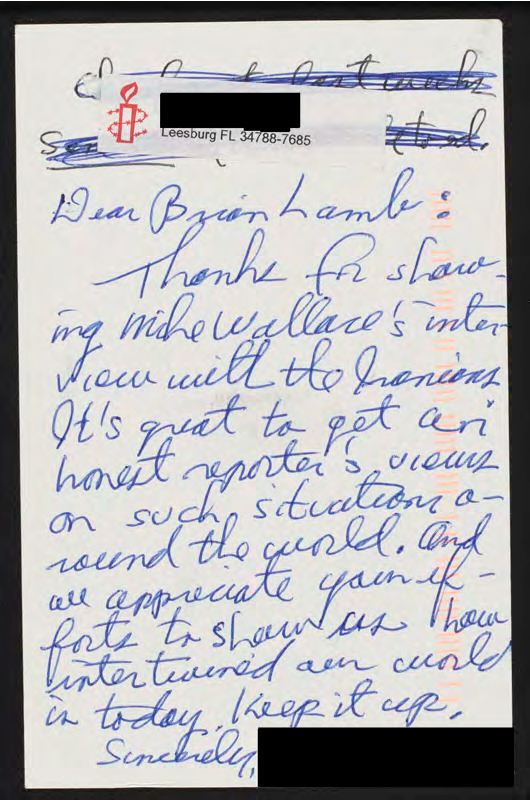 last weeks
Leesburg FL 34788-7685
Dear Brian Lamb:
Thanks for show-
ing Mike Wallace's inter-
view with the Iranians
It's great to get an
honest reporter's views
on such situations a-
round the world. And
we appreciate your ef-
forts to show us how
intertwined our world
is today. Keep it up.
Sincerely,